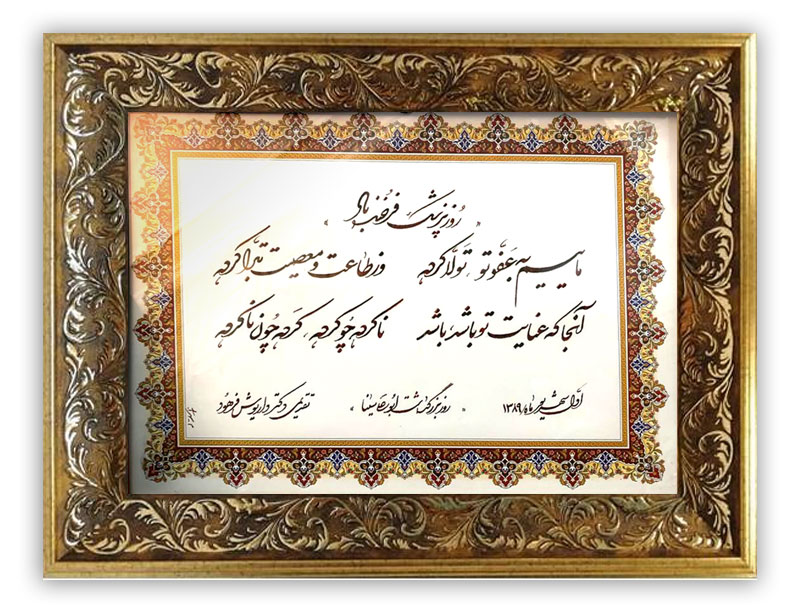 « روز پزشک فرخنده باد »
ماییم به عفو تو تولّا کرده وز طاعت و معصیت تبرّا کرده
آنجا که عنایت تو باشد، باشد ناکرده چو کرده، کرده چون ناکرده
اوّل شهریور ماه ۱۳۸۹ « روز بزرگداشت ابوعلی سینا » تقدیمی دکتر داریوش فرهود